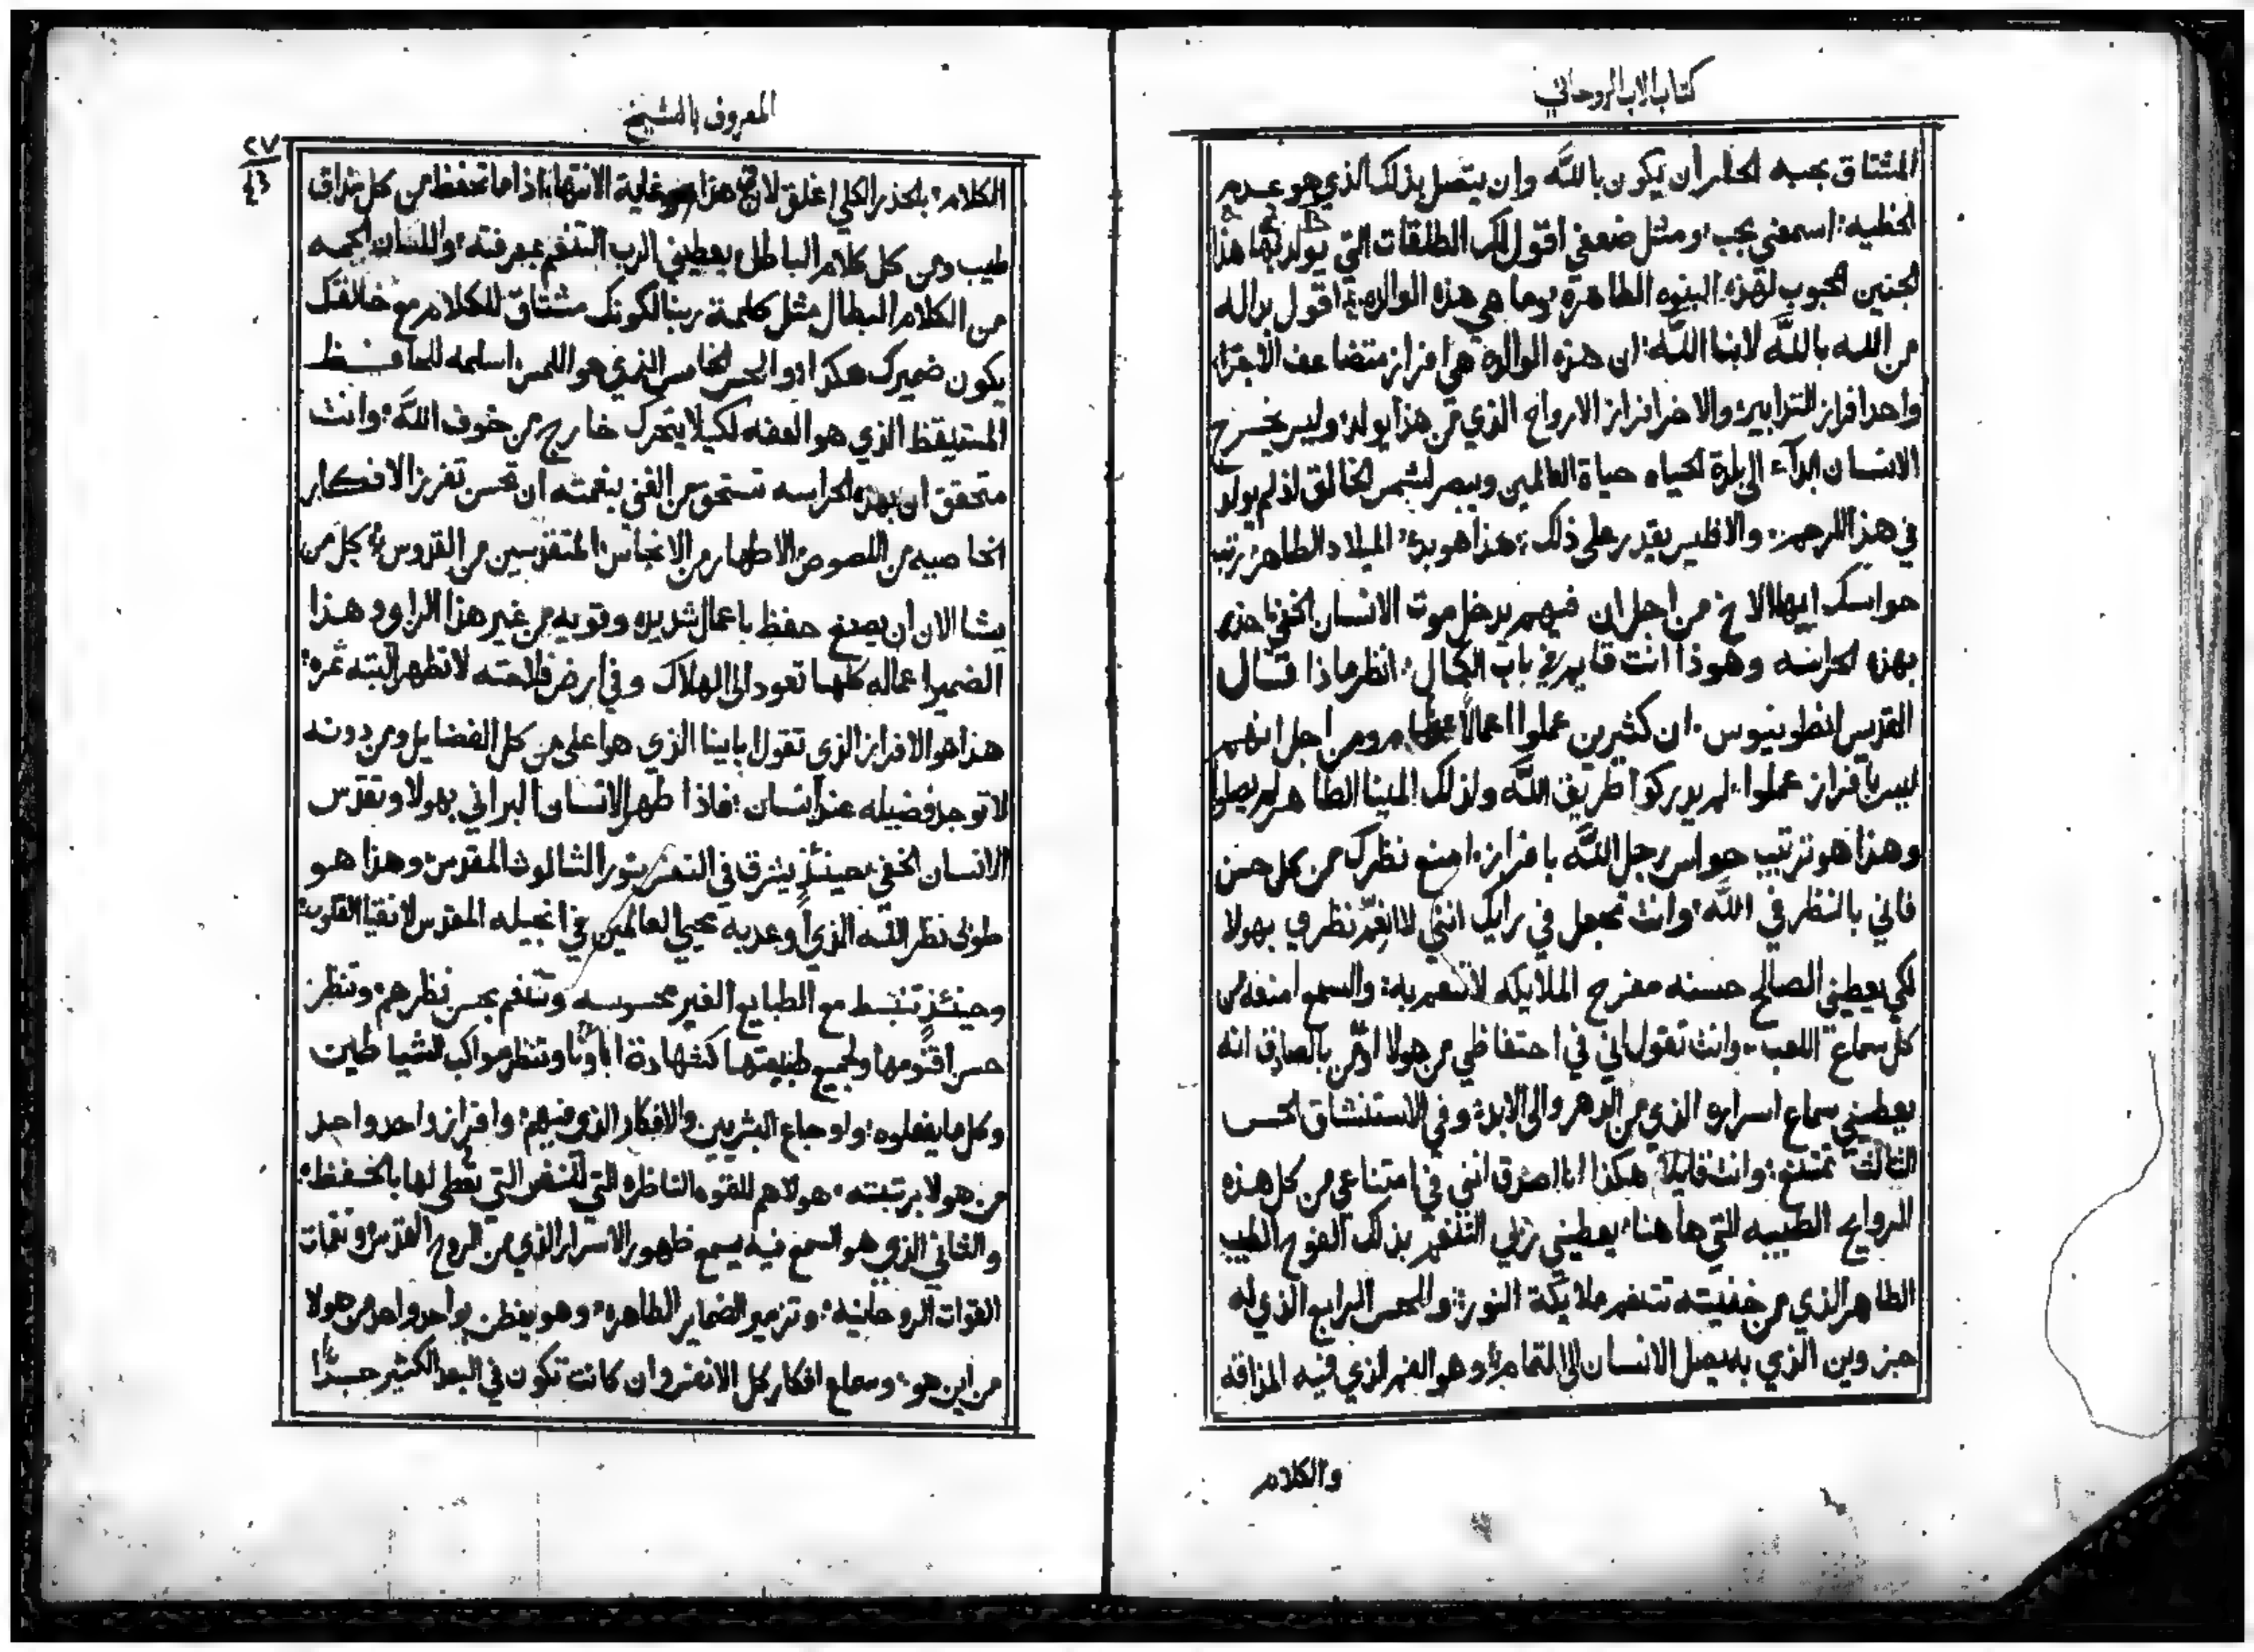 كتاب الاب الروحاني
المشتاق بحبه الحار ان يكون بالله وان يتصل بذلك الذي هو عديم
الخطيه: اسمعني بحب ومثل ضعفي اقول لك الطلقات التي يولد بها هذا
الجنين المحبوب لهذه البنوه الطاهرة وما هي هذه الوالده اقول براله
من الله بالله لابنا الله: ان هذه الوالده هي افراز متضاعف الاجزا
واحد افراز التدابير والاخر افراز الارواح الذي من هذا يولد وليس يخرج
الانسان ابدآء الى بلدة الحياه حياة العالمين ويبصر لشمس الخالق اذ لم يولد
في هذا الرحم والا فليس يقدر على ذلك: هذا هو بدء الميلاد الطاهر رتب
حواسك ايها الاخ من اجل ان فيهم يدخل موت الانسان الخفي خذ
بهذه الحراسه وهوذا انت قايم في باب الكمال انظر ماذا قال
القديس انطونيوس ان كثيرين عملوا اعمالاً عظام ومن اجل انهم
ليس بافراز عملوا لم يدركوا طريق الله ولذلك المينا الطاهر لم يصلوا
وهذا هو ترتيب حواس رجل الله بافراز امنع نظرك من كل حسن
فاني بالنظر في الله وانت تجعل في رايك انني لا انعم نظري بهولا
لكي يعطيني الصالح حسنه مفرح الملايكه لاتنعم به: والسمع امنعه من
كل سماع اللعب وانت تقول اني في احتفاظي من هولا اومن بالصادق انه
يعطيني سماع اسراره الذي من الدهر والى الابد: وفي الاستنشاق الحس
الثالث تمتنع: وانت قايلا هكذا انا اصدق انني في امتناعي من كل هذه
الروايح الطيبه التي هاهنا يعطيني ربي التنعم بذلك الفوح الطيب
الطاهر الذي من خفيته تتنعم ملايكة النور: والحس الرابع الذي له
حزوين الذي به يصل الانسان الى التمام وهو الفم الذي فيه المذاقه
والكلام
المعروف بالشيخ
٢٧
٤٣
الكلام بالحذر الكلي اغلق لانه هذا هو غاية الانتها اذا ما تحفظ من كل مذاق
طيب ومن كل كلام الباطل يعطيني الرب التنعم بمعرفته واللسان الجمه
من الكلام البطال مثل كلمة ربنا لكونك مشتاق للكلام مع خالقك
يكون ضميرك هكذا والحس الخامس الذي هو اللمس اسلمه للحافظ
المستيقظ الذي هو العفه لكيلا يتحرك خارج من خوف الله وانت
متحقق ان بهذه الحراسه تستحق من الغني بنعمته ان تحسن تفرز الافكار
الخاصيه من اللصوص الاطهار من الانجاس المتقدسين من القدوس كل من
يشا الان ان يصنع حفظ باعمال شديده وقويه من غير هذا الراي وهذا
الضمير اعماله كلها تعود الى الهلاك وفي ارض فلاحته لا تظهر البته ثمره
هذا هو الافراز الذي تقول ابايينا الذي هو اعلى من كل الفضايل ومن دونه
لا توجد فضيله عند انسان فاذا طهر الانسان البراني بهولا وتقدس
الانسان الخفي حينئذ يشرق في النفس نور الثالوث المقدس وهذا هو
طوبى نظر الله الذي اوعد به محيي العالمين في انجيله المقدس لانقيا القلوب
وحينئذ تنبسط مع الطبايع الغير محسوسه وتتنعم بحسن نظرهم وتنظر
حسن اقنومها ولجميع طبيعتها كشهادة اباونا وتنظر مواكب الشياطين
وكل ما يفعلوه واوجاع البشريين والافكار الذي فيهم وافراز واحد واحد
من هولا برتبته هولاهم للقوه الناظره التي للنفس التي تعطى لها بالحفظ
والثاني الذي هو السمع فيه يسمع ظهور الاسرار الذي من الروح القدس ونغمات
القوات الروحانيه وتزمير الضماير الطاهره وهو يفطن بواحد واحد من هولا
من اين هو وسماع افكار كل الانفس وان كانت تكون في البعد الكثير جداً